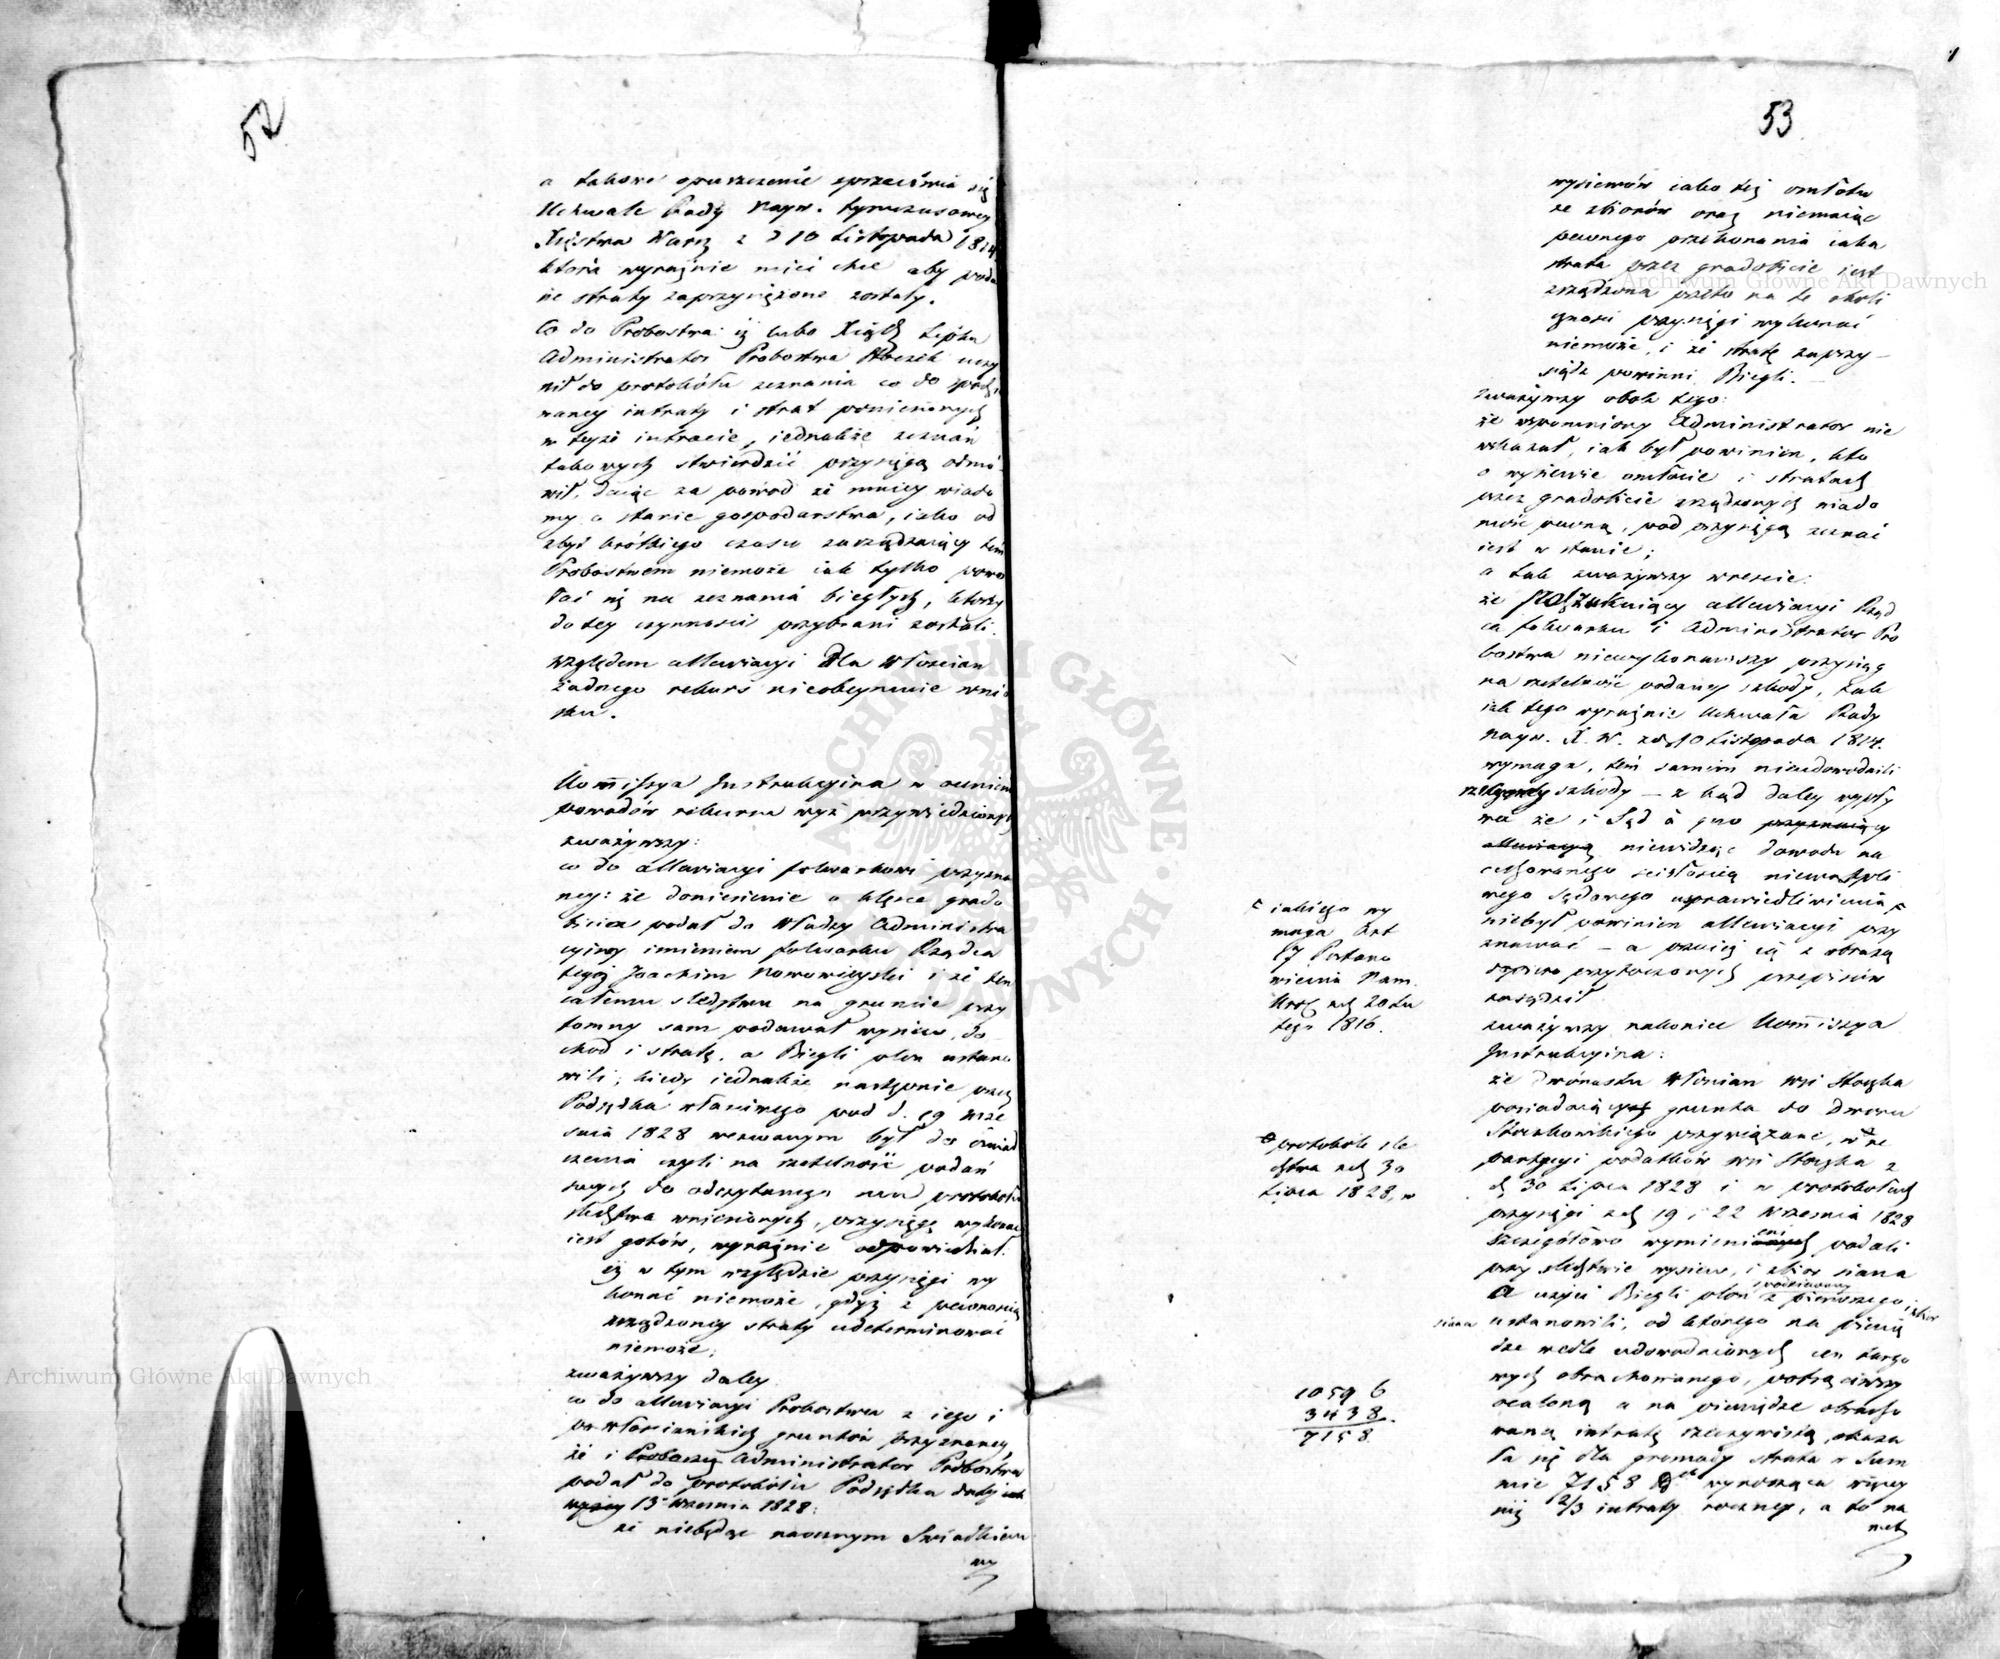 52
a takowe opuszczenie sprzeciwia się
Uchwale Rady Nayw. tymczasowey
Xięstwa Warsz z d 10 Listopada 1814
która wyraźnie mieć chce aby poda
ne straty zaprzysiężone zostały.
Co do Probostwa: iż lubo Xiądz
Administrator Probostwa Stoczek uczy
nił do protokółu zeznania co do
intraty i strat poniesionych
w teyże intracie, iednakże zeznań
takowych stwierdzić przysięgą odmó
wił, daiąc za powód że mniey wiado
my o stanie gospodarstwa, iako od
zbyt krótkiego czasu zarządzaiący tém
Probostwem niemoże iak tylko powo
łać się na zeznania biegłych, którzy
do tey czynności przybrani zostali.
Względem allewiacyi dla Włościan
żadnego rekurs nieobeymuie wnio
sku.
Kommissya Instrukcyina w ocenieniu
powodów rekursu wyż przywiedzionych
zważywszy:
co do allewiacyi folwarkowi przyzna
ney: że doniesienie o klęsce grado
bicia podał do Władzy Administra
cyiney imieniem folwarku Rządca
tegoż Joachim Nowowieyski i że ten
całemu śledztwu na gruncie przy
tomny sam podawał wysiew, do
chod i stratę, a Biegli plon ustano
wili; kiedy iednakże następnie przez
Podsędka właściwego pod d. 19 Wrze
śnia 1828 wezwanym był do oświad
czenia czyli na rzetelność podań
swych do odczytanego mu protokółu
śledztwa wniesionych, przysięgę wykonać
iest gotów, wyraźnie odpowiedział:
iż w tym względzie przysięgi wy
konać niemoże, gdyż z pewnością
zrządzoney straty udeterminować
niemoże;
zważywszy daley
co do allewiacyi Probostwu z iego i
po włościańskich gruntów przyznaney,
że i Administrator Probostwa
podał do protokółu Podsędka
13 Września 1828:
że niebędąc naocznym Świadkiem
wy
53
wysiewów iako też omłotu
ze zbiorów oraz niemaiąc
pewnego przekonania iaka
strata przez gradobicie iest
zrządzona przeto na te okoli
czności przysięgi wykonać
niemoże, i że stratę zaprzy-
siądz powinni Biegli.
zważywszy obok tego:
że wspomniony Administrator nie
wskazał, iak był powinien, kto
o wysiewie omłocie i stratach
przez gradobicie zrządzonych wiado
mość pewną, pod przysięgą zeznać
iest w stanie;
a tak zważywszy wreście:
że poszukuiący allewiacyi Rząd
ca folwarku i Administrator Pro
bostwa niewykonawszy przysięg
na rzetelność podaney szkody, tak
iak tego wyraźnie Uchwała Rady
Nayw. X. W. z d 10 Listopada 1814.
wymaga, tém samém nieudowodnili
szkody - z kąd daley wypły
wa że i Sąd à quo
niewidząc dowodu na
cechowanego ścisłością niewątpli
wego sądowego usprawiedliwienia
niebył powinien allewiacyi przy
znawać - a przecież ią z obrazą
dopiero przytoczonych przepisów
zasądził
zważywszy nakoniec Kommissya
Instrukcyina:
że dwónastu Włościan wsi Stoczka
posiadaiący grunta do Dworu
Stoczkowskiego przywiązane, w
partycyi podatków wsi Stoczka z
d 30 Lipca 1828 i w protokółach
przysięgi z d 19 i 22 Września 1828
szczegółowo wymienieni podali
przy śledztwie wysiew, i zbiór siana
a zaś Biegli plon z pierwszego, i zbior
siana ustanowili, od którego na pienią
dze wedle udowodnionych cen targo
wych obrachowanego, potrąciwszy
ocaloną a na pieniądze obracho
waną intratę rzeczywistą, okaza
ła się dla gromady strata w Sum
mie 7158 wynosząca więcey
niż 2/3 intraty roczney, a to na
iakiego wy
maga Art
17 Postano
wienia Nam.
Król z d 20 Lu
tego 1816.
protokóle śle
dztwa z d 30
Lipca 1828, w
10596
3438
7158